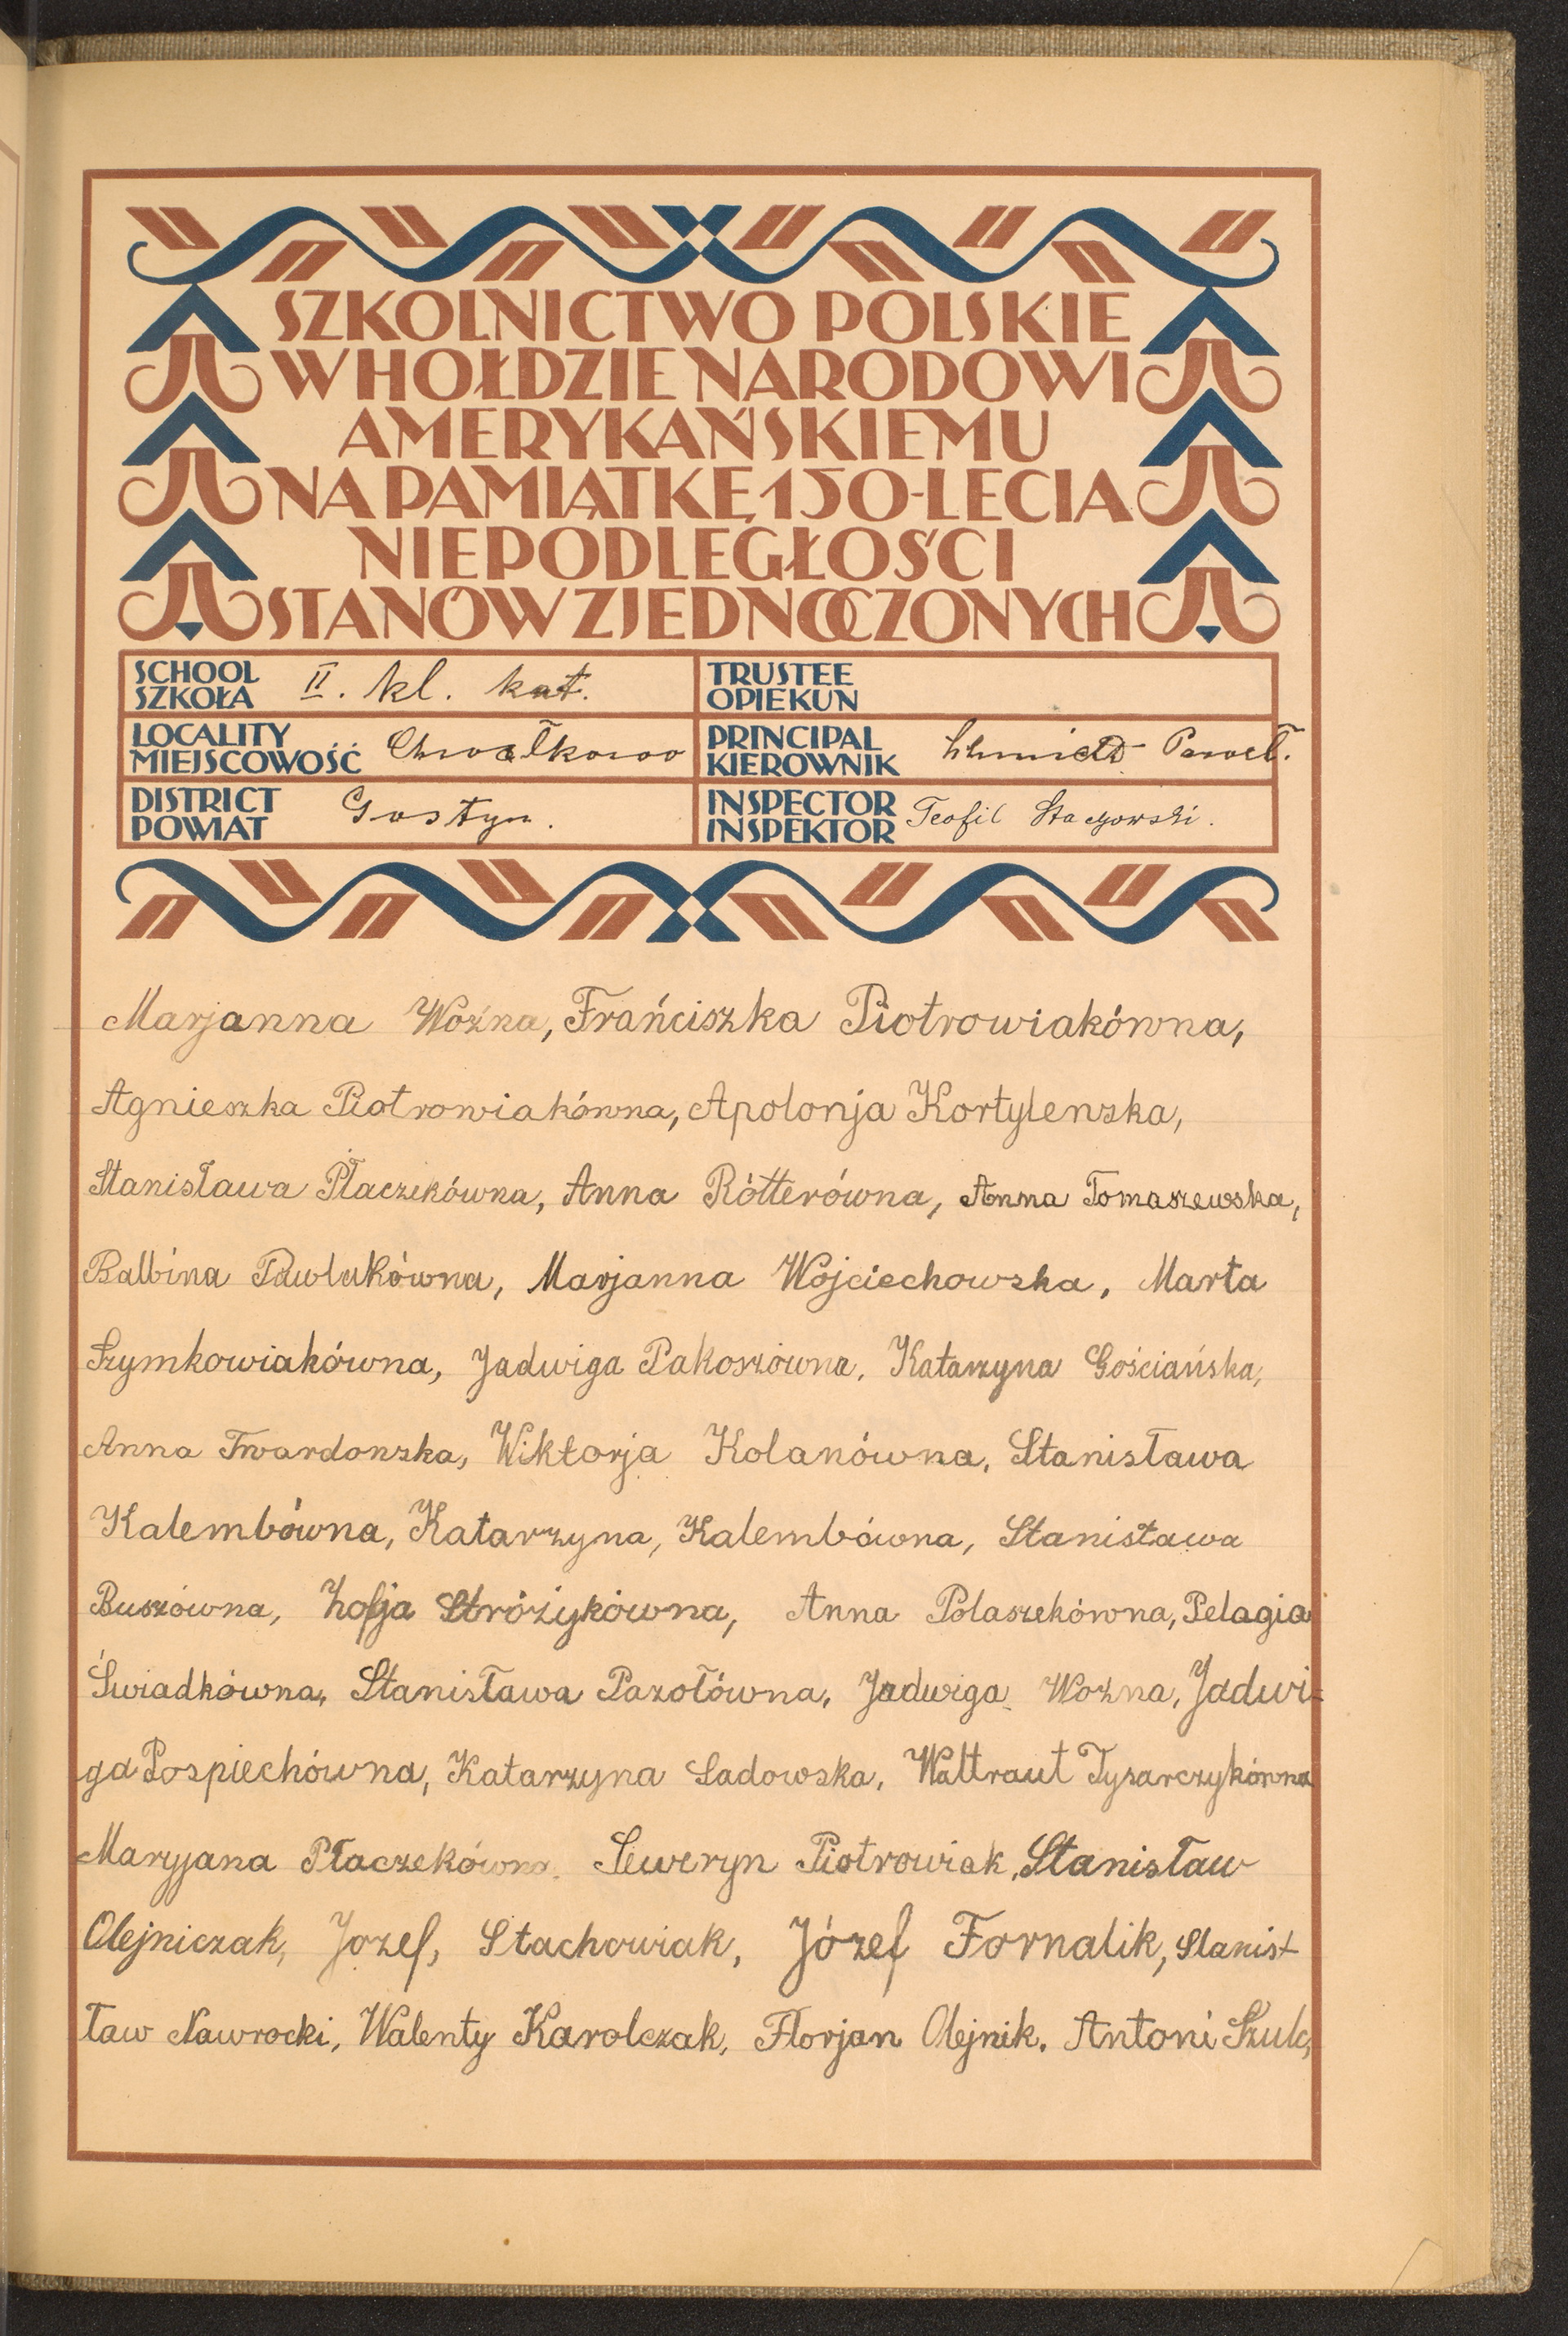 SZKOLNICTWO POLSKIE
W HOŁDZIE NARODOWI
AMERYKAŃSKIEMU
NA PAMIĄTKĘ 150-LECIA
NIEPODLEGŁOŚCI
STANÓW ZJEDNOCZONYCH
SCHOOL
SZKOŁA II. kl. kat.
TRUSTEE
OPIEKUN
LOCALITY
MIEJSCOWOŚĆ Chwałkowo
PRINCIPAL
KIEROWNIK Schmidt Paweł.
DISTRICT
POWIAT Gostyn.
INSPECTOR
INSPEKTOR Teofil Stachowski.
Marjanna Woźna, Frańciszka Piotrowiakówna,
Agnieszka Piotrowiakówna, Apolonja Kortylewska,
Stanisława Płaczekówna, Anna Rótterówna, Anna Tomaszewska,
Balbina Pawlakówna, Marjanna Wojciechowska, Marta
Szymkowiakówna, Jadwiga Pakoszówna, Katarzyna Gościańska,
Anna Twardowska, Wiktorja Kolanówna, Stanisława
Kalembówna, Katarzyna, Kalembówna, Stanisława
Buszówna, Zofja Stróżykówna, Anna Polaszekówna, Pelagia
Świadkówna, Stanisława Pazołówna, Jadwiga Wozna, Jadwi=
ga Pospiechówna, Katarzyna Sadowska, Waltraut Tysarczykówna
Maryjana Płaczekówna. Seweryn Piotrowiak, Stanisław
Olejniczak, Jozef, Stachowiak, Józef Fornalik, Stanis-
ław Nawrocki, Walenty Karolczak, Florjan Olejnik. Antoni Szulc,